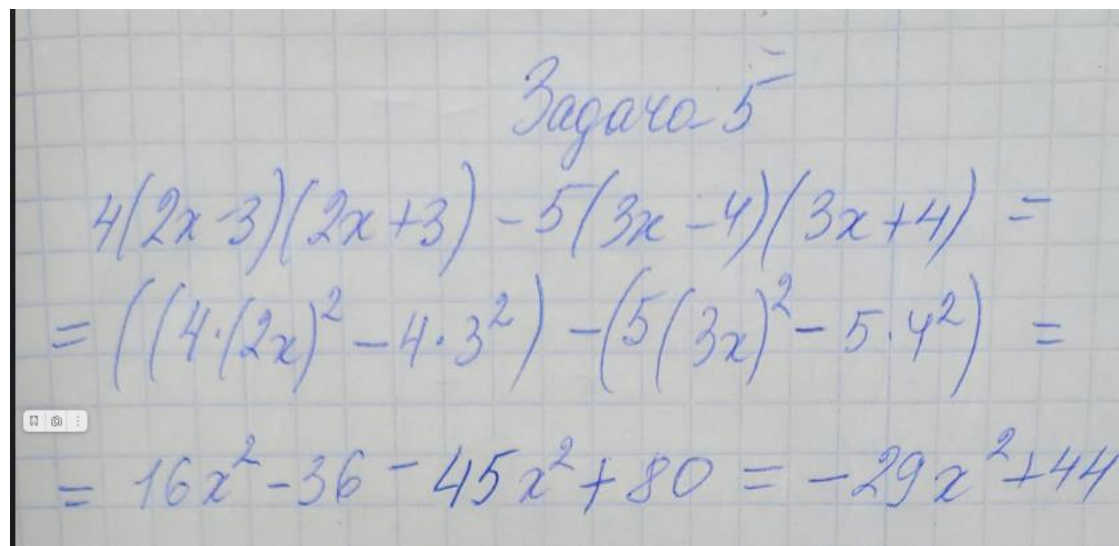 Задача 5
4(2x-3)(2x+3)-5(3x-4)(3x+4)=
=((4·(2x)²-4·3²)-(5(3x)²-5·4²)=
=16x²-36-45x²+80=-29x²+44